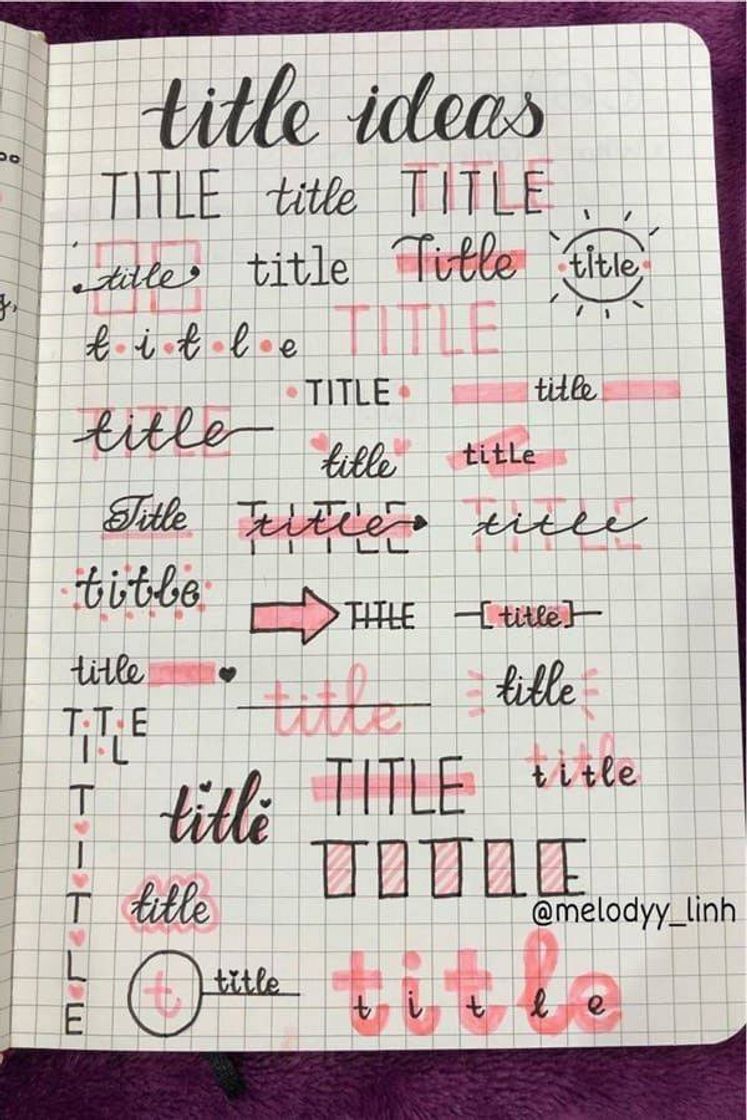 title ideas
TITLE title TITLE
title title Title title
t i t l e TITLE
TITLE title
TITLE title
title title
Title TITLE title TITLE title
title
TITLE [title]
title
title title
TITLE
TITLE title
title
TITLE
title
@melodyy_linh
TITLE
t title title
t i t l e